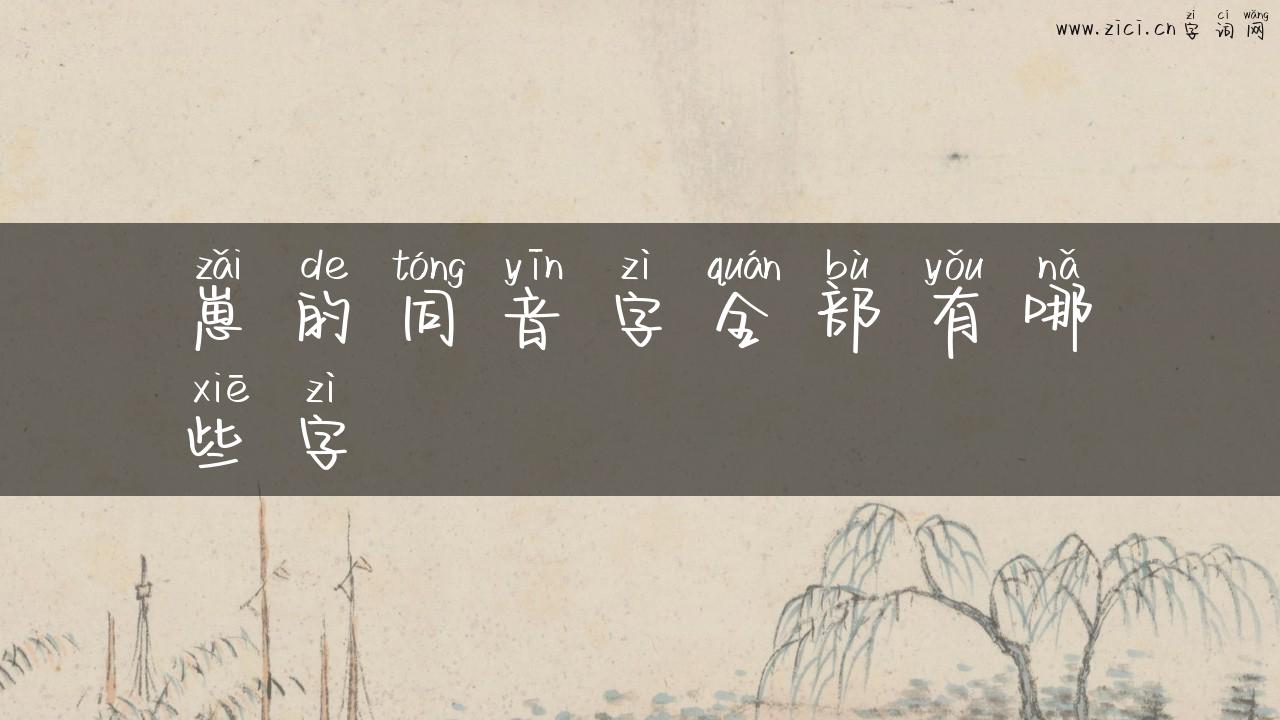 zì cí wǎng
www.zici.cn 字词网
zǎi de tóng yīn zì quán bù yǒu nǎ
崽的同音字全部有哪
xiē zì
些字